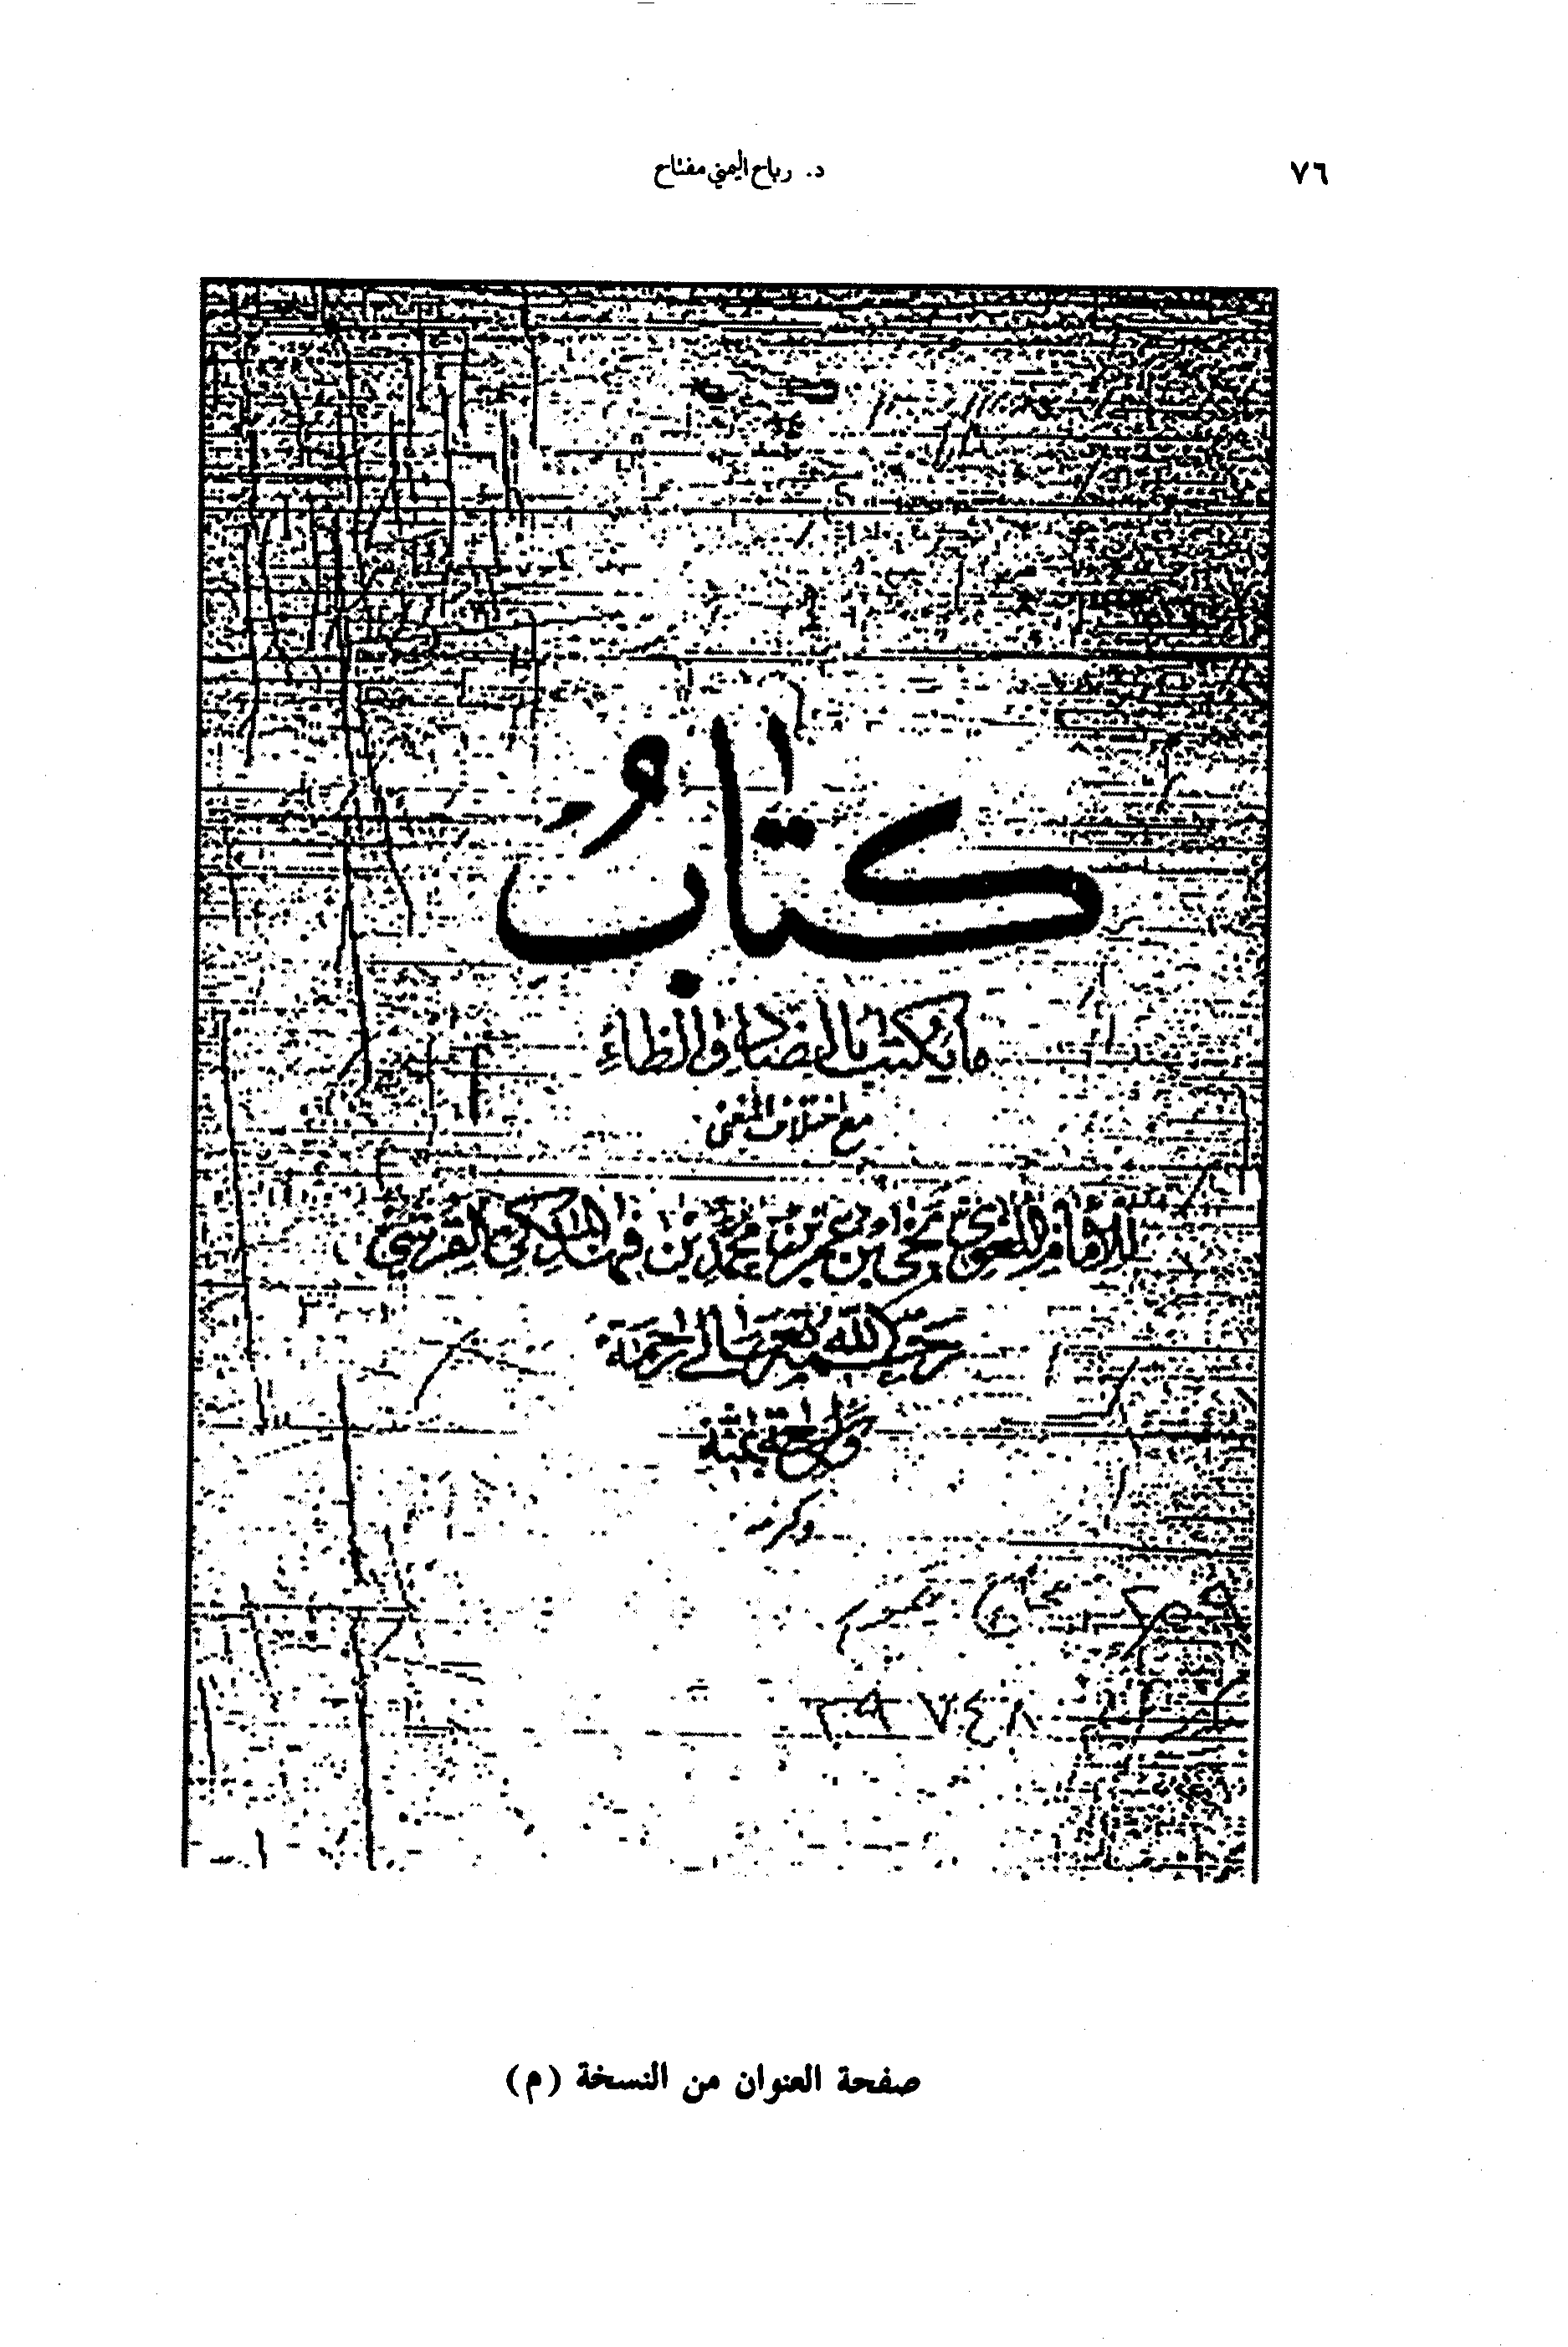 ٧٦
د. رباح اليمني مفتاح
كتابُ
ما يكتب بالضاد والظاءِ
مع اختلاف المعنى
للإمام اللغوي بن عمر بن محمد بن فهد المكي القرشي
الله تعالى رحمة
وكرمه
٢٩٧٤٨
صفحة العنوان من النسخة (م)